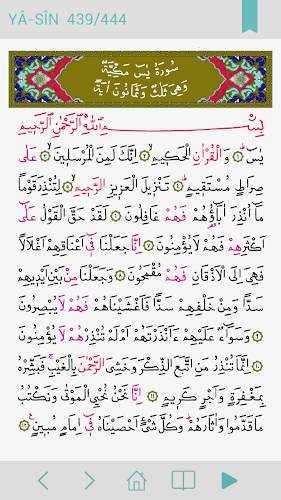 YÂ-SÎN 439/444
سُورَةُ يٰسٓ مَكِّيَّةٌ
وَهِيَ ثَلٰثٌ وَثَمَانُونَ اٰيَةً
بِسْــــــمِ اللّٰهِ الرَّحْمٰنِ الرَّحٖيمِ
يٰسٓ ۚ ﴿١﴾ وَالْقُرْاٰنِ الْحَكٖيمِ ﴿٢﴾ اِنَّكَ لَمِنَ الْمُرْسَلٖينَ ﴿٣﴾ عَلٰى
صِرَاطٍ مُسْتَقٖيمٍ ﴿٤﴾ تَنْزٖيلَ الْعَزٖيزِ الرَّحٖيمِ ﴿٥﴾ لِتُنْذِرَ قَوْمًا
مَٓا اُنْذِرَ اٰبَٓاؤُ۬هُمْ فَهُمْ غَافِلُونَ ﴿٦﴾ لَقَدْ حَقَّ الْقَوْلُ عَلٰٓى
اَكْثَرِهِمْ فَهُمْ لَا يُؤْمِنُونَ ﴿٧﴾ اِنَّا جَعَلْنَا فٖٓي اَعْنَاقِهِمْ اَغْلَالًا
فَهِيَ اِلَى الْاَذْقَانِ فَهُمْ مُقْمَحُونَ ﴿٨﴾ وَجَعَلْنَا مِنْ بَيْنِ اَيْدٖيهِمْ
سَدًّا وَمِنْ خَلْفِهِمْ سَدًّا فَاَغْشَيْنَاهُمْ فَهُمْ لَا يُبْصِرُونَ
﴿٩﴾ وَسَوَٓاءٌ عَلَيْهِمْ ءَاَنْذَرْتَهُمْ اَمْ لَمْ تُنْذِرْهُمْ لَا يُؤْمِنُونَ
﴿١٠﴾ اِنَّمَا تُنْذِرُ مَنِ اتَّبَعَ الذِّكْرَ وَخَشِيَ الرَّحْمٰنَ بِالْغَيْبِۚ فَبَشِّرْهُ
بِمَغْفِرَةٍ وَاَجْرٍ كَرٖيمٍ ﴿١١﴾ اِنَّا نَحْنُ نُحْيِ الْمَوْتٰى وَنَكْتُبُ
مَا قَدَّمُوا وَاٰثَارَهُمْۜ وَكُلَّ شَيْءٍ اَحْصَيْنَاهُ فٖٓي اِمَامٍ مُبٖينٍ۟ ﴿١٢﴾